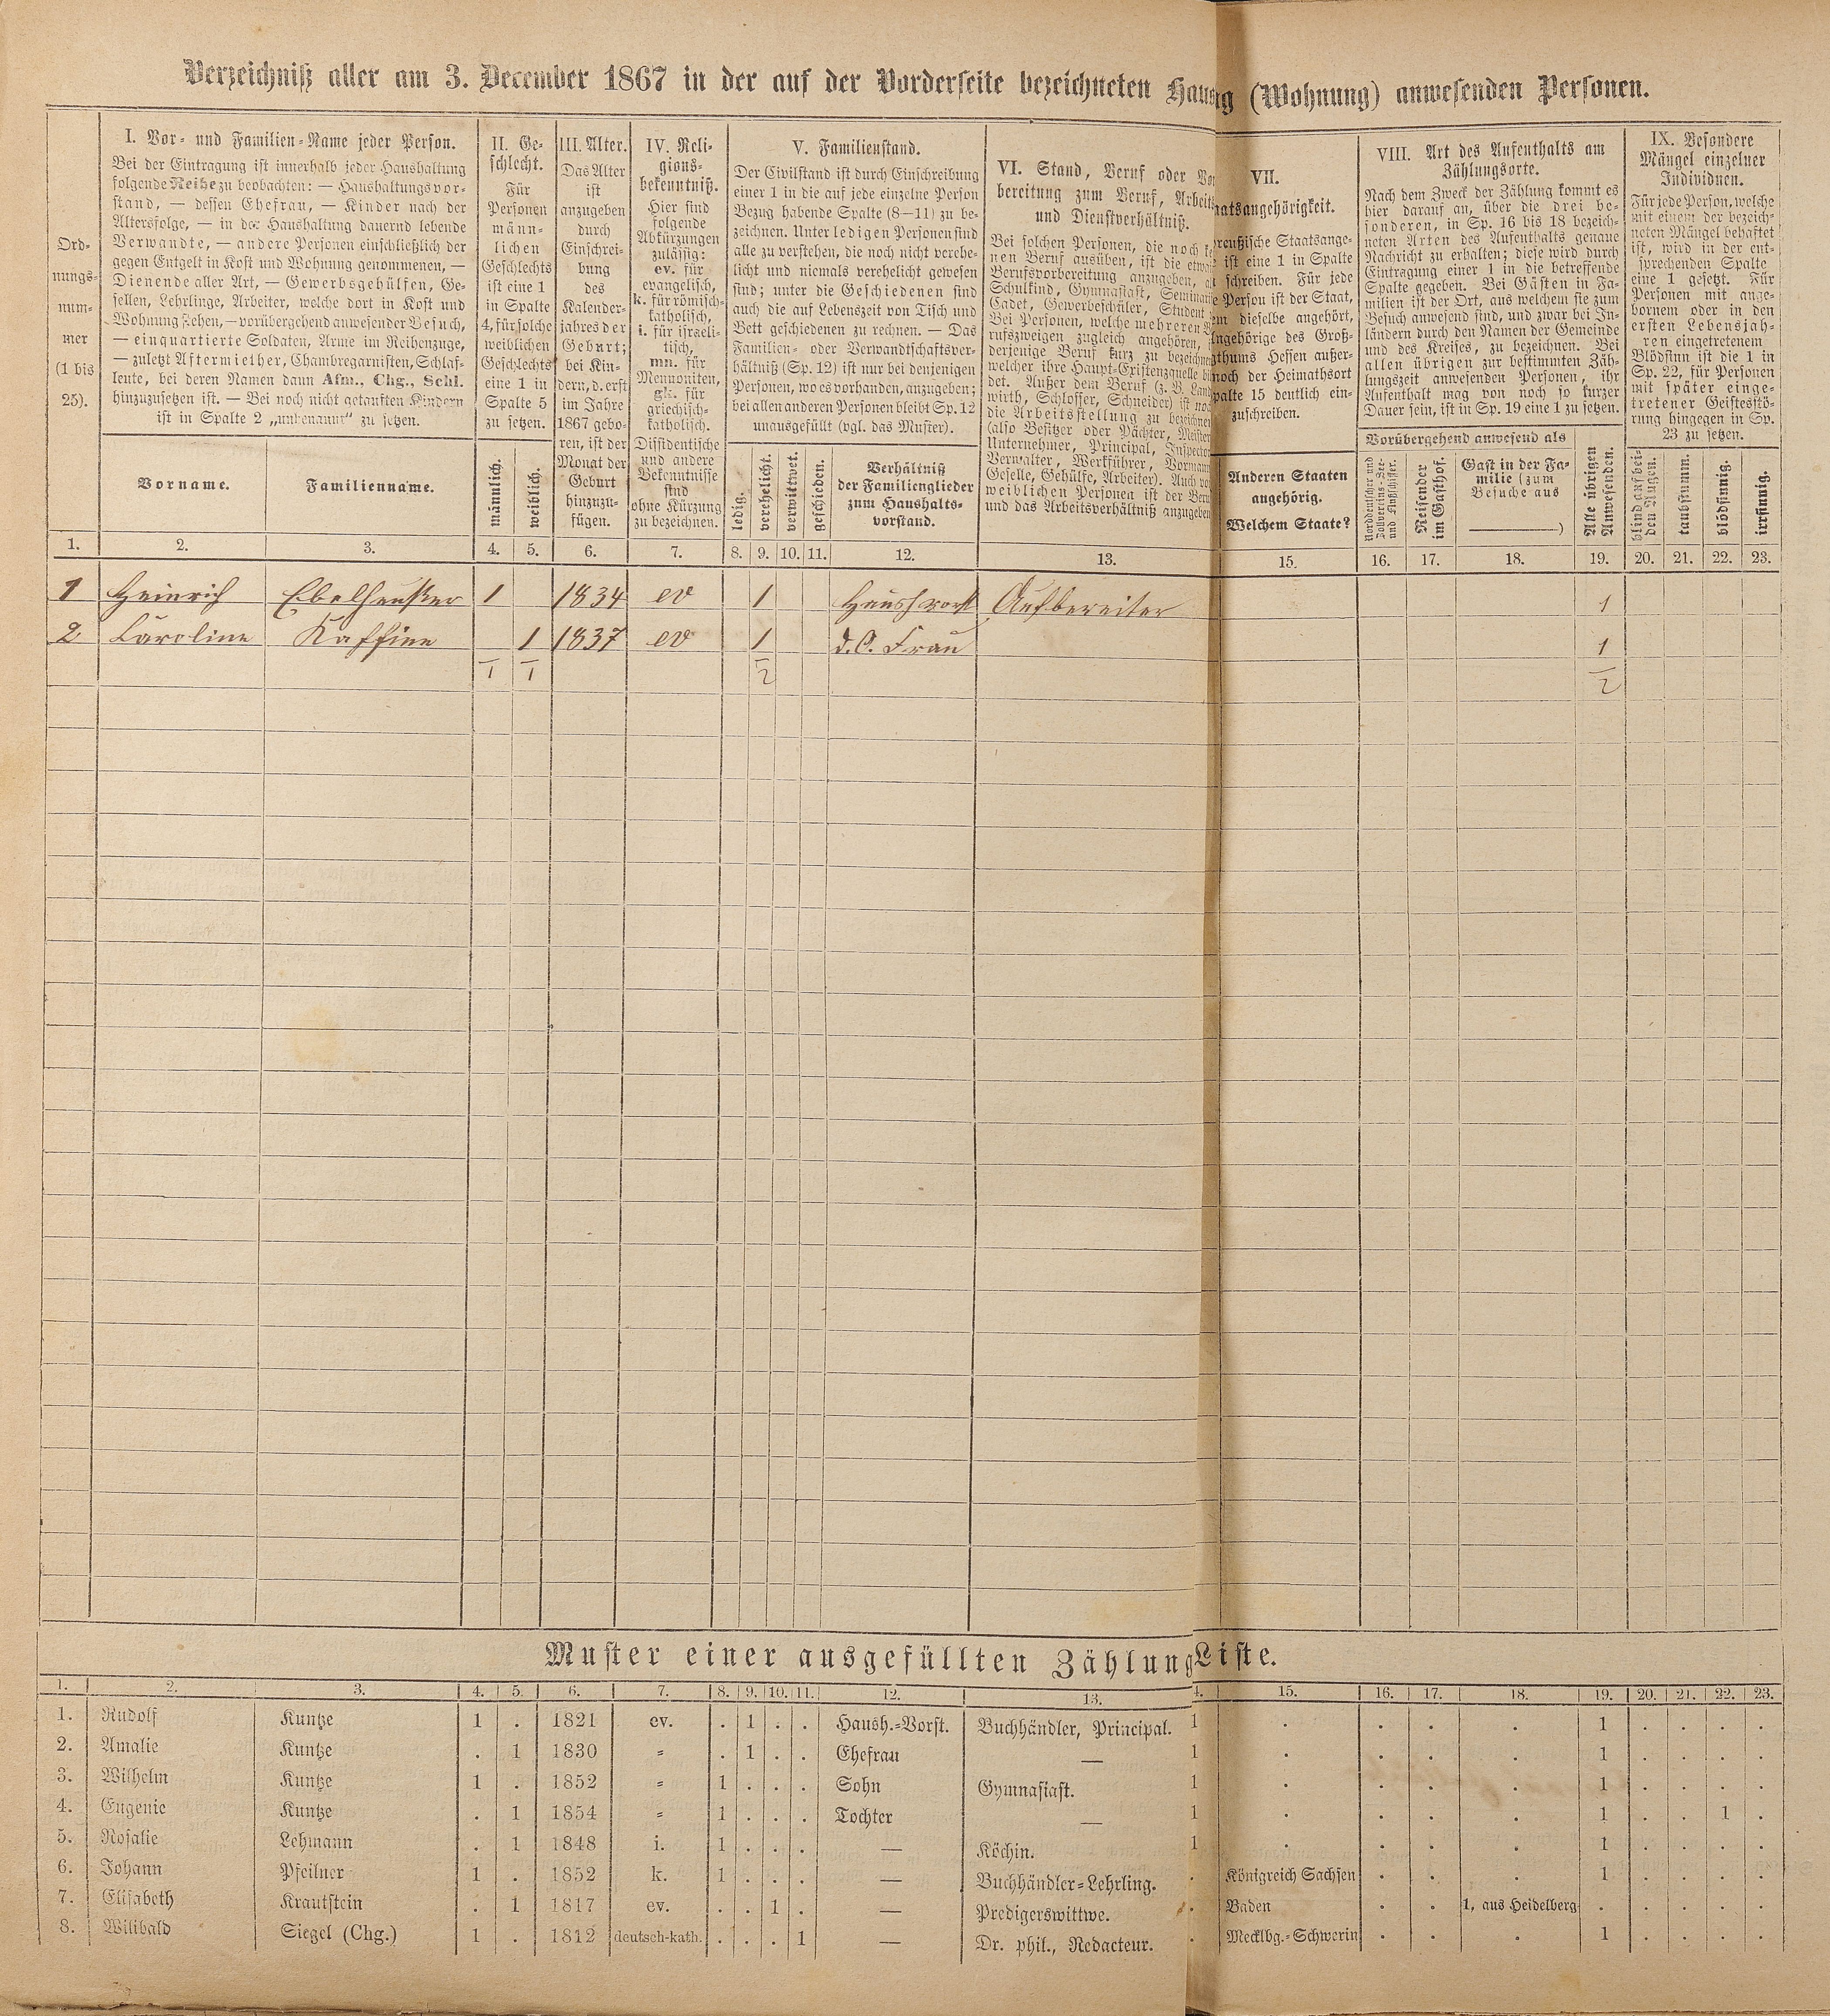 Verzeichniß aller am 3. December 1867 in der auf der Vorderseite bezeichneten Haus g (Wohnung) anwesenden Personen.
Ord-
nungs-
num-
mer
(1 bis
25).
I. Vor- und Familien-Name jeder Person.
Bei der Eintragung ist innerhalb jeder Haushaltung
folgende Reihe zu beobachten: — Haushaltungsvor-
stand, — dessen Ehefrau, — Kinder nach der
Altersfolge, — in der Haushaltung dauernd lebende
Verwandte, — andere Personen einschließlich der
gegen Entgelt in Kost und Wohnung genommenen, —
Dienende aller Art, — Gewerbsgehülfen, Ge-
sellen, Lehrlinge, Arbeiter, welche dort in Kost und
Wohnung stehen, — vorübergehend anwesender Besuch,
— einquartierte Soldaten, Arme im Reihenzuge,
— zuletzt Aftermiether, Chambregarnisten, Schlaf-
leute, bei deren Namen dann Afm., Chg., Schl.
hinzuzusetzen ist. — Bei noch nicht getauften Kindern
ist in Spalte 2 „unbenannt“ zu setzen.
Vorname.
Familienname.
II. Ge-
schlecht.
Für
Personen
männ-
lichen
Geschlechts
ist eine 1
in Spalte
4, für solche
weiblichen
Geschlechts
eine 1 in
Spalte 5
zu setzen.
männlich.
weiblich.
III. Alter.
Das Alter
ist
anzugeben
durch
Einschrei-
bung
des
Kalender-
jahres der
Geburt;
bei Kin-
dern, d. erst
im Jahre
1867 gebo-
ren, ist der
Monat der
Geburt
hinzuzu-
fügen.
IV. Reli-
gions-
bekenntniß.
Hier sind
folgende
Abkürzungen
zulässig:
ev. für
evangelisch,
k. für römisch-
katholisch,
i. für israeli-
tisch,
mn. für
Mennoniten,
gk. für
griechisch-
katholisch.
Dissidentische
und andere
Bekenntnisse
sind
ohne Kürzung
zu bezeichnen.
V. Familienstand.
Der Civilstand ist durch Einschreibung
einer 1 in die auf jede einzelne Person
Bezug habende Spalte (8—11) zu be-
zeichnen. Unter ledigen Personen sind
alle zu verstehen, die noch nicht verehe-
licht und niemals verehelicht gewesen
sind; unter die Geschiedenen sind
auch die auf Lebenszeit von Tisch und
Bett geschiedenen zu rechnen. — Das
Familien- oder Verwandtschaftsver-
hältniß (Sp. 12) ist nur bei denjenigen
Personen, wo es vorhanden, anzugeben;
bei allen anderen Personen bleibt Sp. 12
unausgefüllt (vgl. das Muster).
ledig.
verehelicht.
verwittwet.
geschieden.
Verhältniß
der Familienglieder
zum Haushalts-
vorstand.
VI. Stand, Beruf oder Vor
bereitung zum Beruf, Arbeits
und Dienstverhältniß.
Bei solchen Personen, die noch ke
nen Beruf ausüben, ist die etwa
Berufsvorbereitung anzugeben, a
Schulkind, Gymnasiast, Seminari
Cadet, Gewerbeschüler, Student
Bei Personen, welche mehreren
rufszweigen zugleich angehören,
derjenige Beruf kurz zu bezeichne
welcher ihre Haupt-Existenzquelle bi
det. Außer dem Beruf (z. B. Land
wirth, Schlosser, Schneider) ist noc
die Arbeitsstellung zu bezeichnen
(also Besitzer oder Pächter, Meister
Unternehmer, Principal, Inspector
Verwalter, Werkführer, Vormann
Geselle, Gehülfe, Arbeiter). Auch vo
weiblichen Personen ist der Beru
und das Arbeitsverhältniß anzugeben
VII.
aatsangehörigkeit.
reußische Staatsange-
ist eine 1 in Spalte
schreiben. Für jede
e Person ist der Staat,
m dieselbe angehört,
ngehörige des Groß-
thums Hessen außer-
noch der Heimathsort
palte 15 deutlich ein-
zuschreiben.
Anderen Staaten
angehörig.
Welchem Staate?
VIII. Art des Aufenthalts am
Zählungsorte.
Nach dem Zweck der Zählung kommt es
hier darauf an, über die drei be-
sonderen, in Sp. 16 bis 18 bezeich-
neten Arten des Aufenthalts genaue
Nachricht zu erhalten; diese wird durch
Eintragung einer 1 in die betreffende
Spalte gegeben. Bei Gästen in Fa-
milien ist der Ort, aus welchem sie zum
Besuch anwesend sind, und zwar bei In-
ländern durch den Namen der Gemeinde
und des Kreises, zu bezeichnen. Bei
allen übrigen zur bestimmten Zäh-
lungszeit anwesenden Personen, ihr
Aufenthalt mag von noch so kurzer
Dauer sein, ist in Sp. 19 eine 1 zu setzen.
Vorübergehend anwesend als
Norddeutscher und
Zollvereins-See-
und Flußschiffer.
Reisender
im Gasthof.
Gast in der Fa-
milie (zum
Besuche aus
———)
Alle übrigen
Anwesenden.
IX. Besondere
Mängel einzelner
Individuen.
Für jede Person, welche
mit einem der bezeich-
neten Mängel behaftet
ist, wird in der ent-
sprechenden Spalte
eine 1 gesetzt. Für
Personen mit ange-
bornem oder in den
ersten Lebensjah-
ren eingetretenem
Blödsinn ist die 1 in
Sp. 22, für Personen
mit später einge-
tretener Geistesstö-
rung hingegen in Sp.
23 zu setzen.
blind auf bei-
den Augen.
taubstumm.
blödsinnig.
irrsinnig.
1. 2. 3. 4. 5. 6. 7. 8. 9. 10. 11. 12. 13. 15. 16. 17. 18. 19. 20. 21. 22. 23.
1 Heinrich Ebelheußer 1 1834 ev 1 Haushvorst Aufbereiter 1
2 Caroline Kaffine 1 1837 ev 1 d.O. Frau 1
1 1 2 2
Muster einer ausgefüllten Zählung Liste.
1. 2. 3. 4. 5. 6. 7. 8. 9. 10. 11. 12. 13. 4. 15. 16. 17. 18. 19. 20. 21. 22. 23.
1. Rudolf Kuntze 1 . 1821 ev. . 1 . . Haush.-Vorst. Buchhändler, Principal. 1 . . . . 1 . . . .
2. Amalie Kuntze . 1 1830 = . 1 . . Ehefrau — 1 . . . . 1 . . . .
3. Wilhelm Kuntze 1 . 1852 = 1 . . . Sohn Gymnasiast. 1 . . . . 1 . . . .
4. Eugenie Kuntze . 1 1854 = 1 . . . Tochter — 1 . . . . 1 . . 1 .
5. Rosalie Lehmann . 1 1848 i. 1 . . . — Köchin. 1 . . . . 1 . . . .
6. Johann Pfeilner 1 . 1852 k. 1 . . . — Buchhändler-Lehrling. . Königreich Sachsen . . . 1 . . . .
7. Elisabeth Krautstein . 1 1817 ev. . . 1 . — Predigerswittwe. . Baden . . 1, aus Heidelberg . . . . .
8. Wilibald Siegel (Chg.) 1 . 1812 deutsch-kath. . . . 1 — Dr. phil., Redacteur. . Mecklbg.-Schwerin . . . 1 . . . .